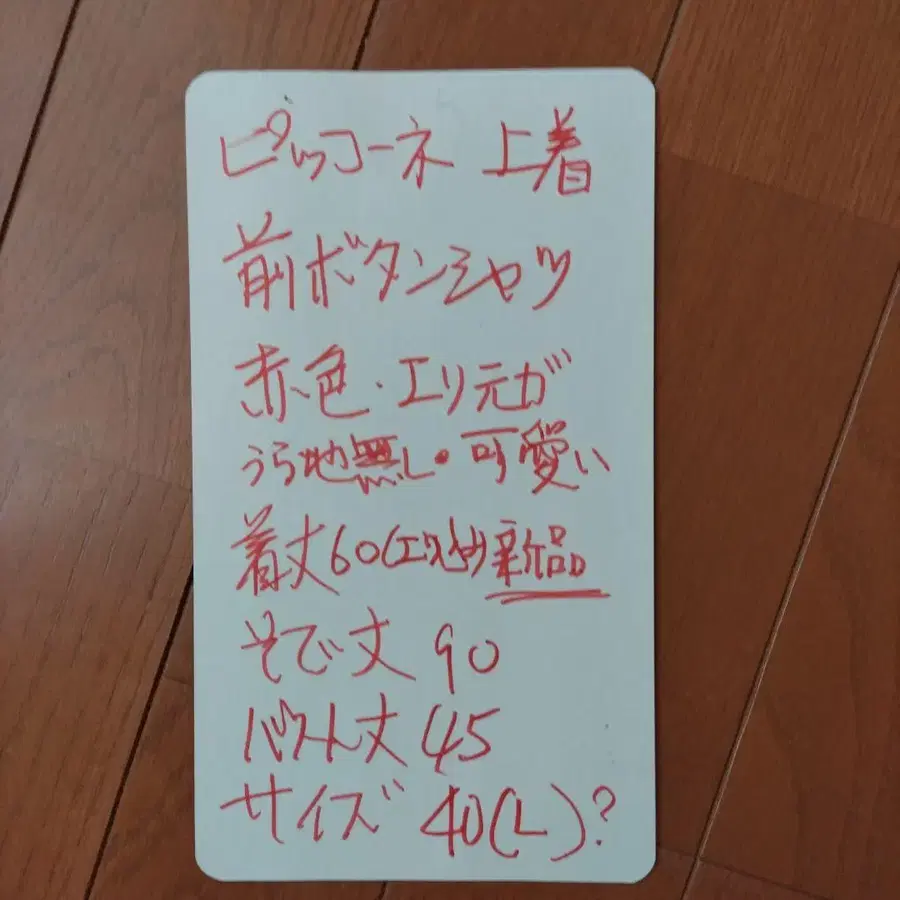 ピッコーネ 上着
前ボタンシャツ
赤色・エリ元が
うら地無し・可愛い
着丈60(エリ込み)新品
そで丈 90
バスト丈 45
サイズ 40(L)?